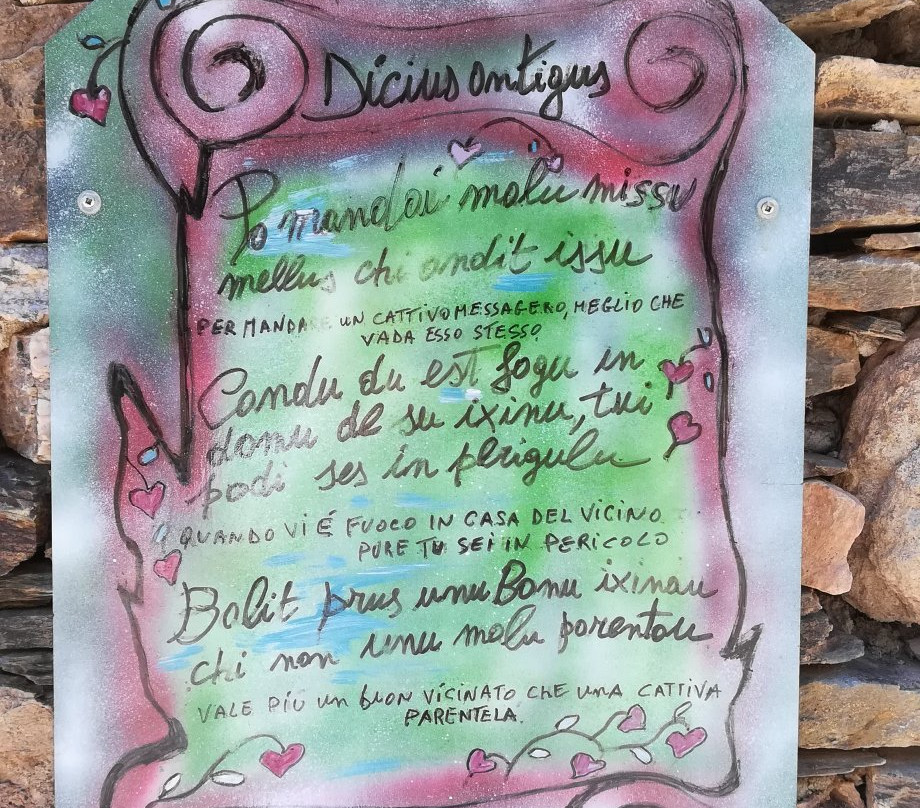 Dicius antigus
Po mandai malu missu
mellus chi andit issu
PER MANDARE UN CATTIVO MESSAGERO, MEGLIO CHE
VADA ESSO STESSO
Candu du est fogu in
domu de su ixinu, tui
podi ses in perigulu
QUANDO VI É FUOCO IN CASA DEL VICINO
PURE TU SEI IN PERICOLO
Balit prus unu Bonu ixinau
chi non unu malu parentau
VALE PIÙ UN BUON VICINATO CHE UNA CATTIVA
PARENTELA.